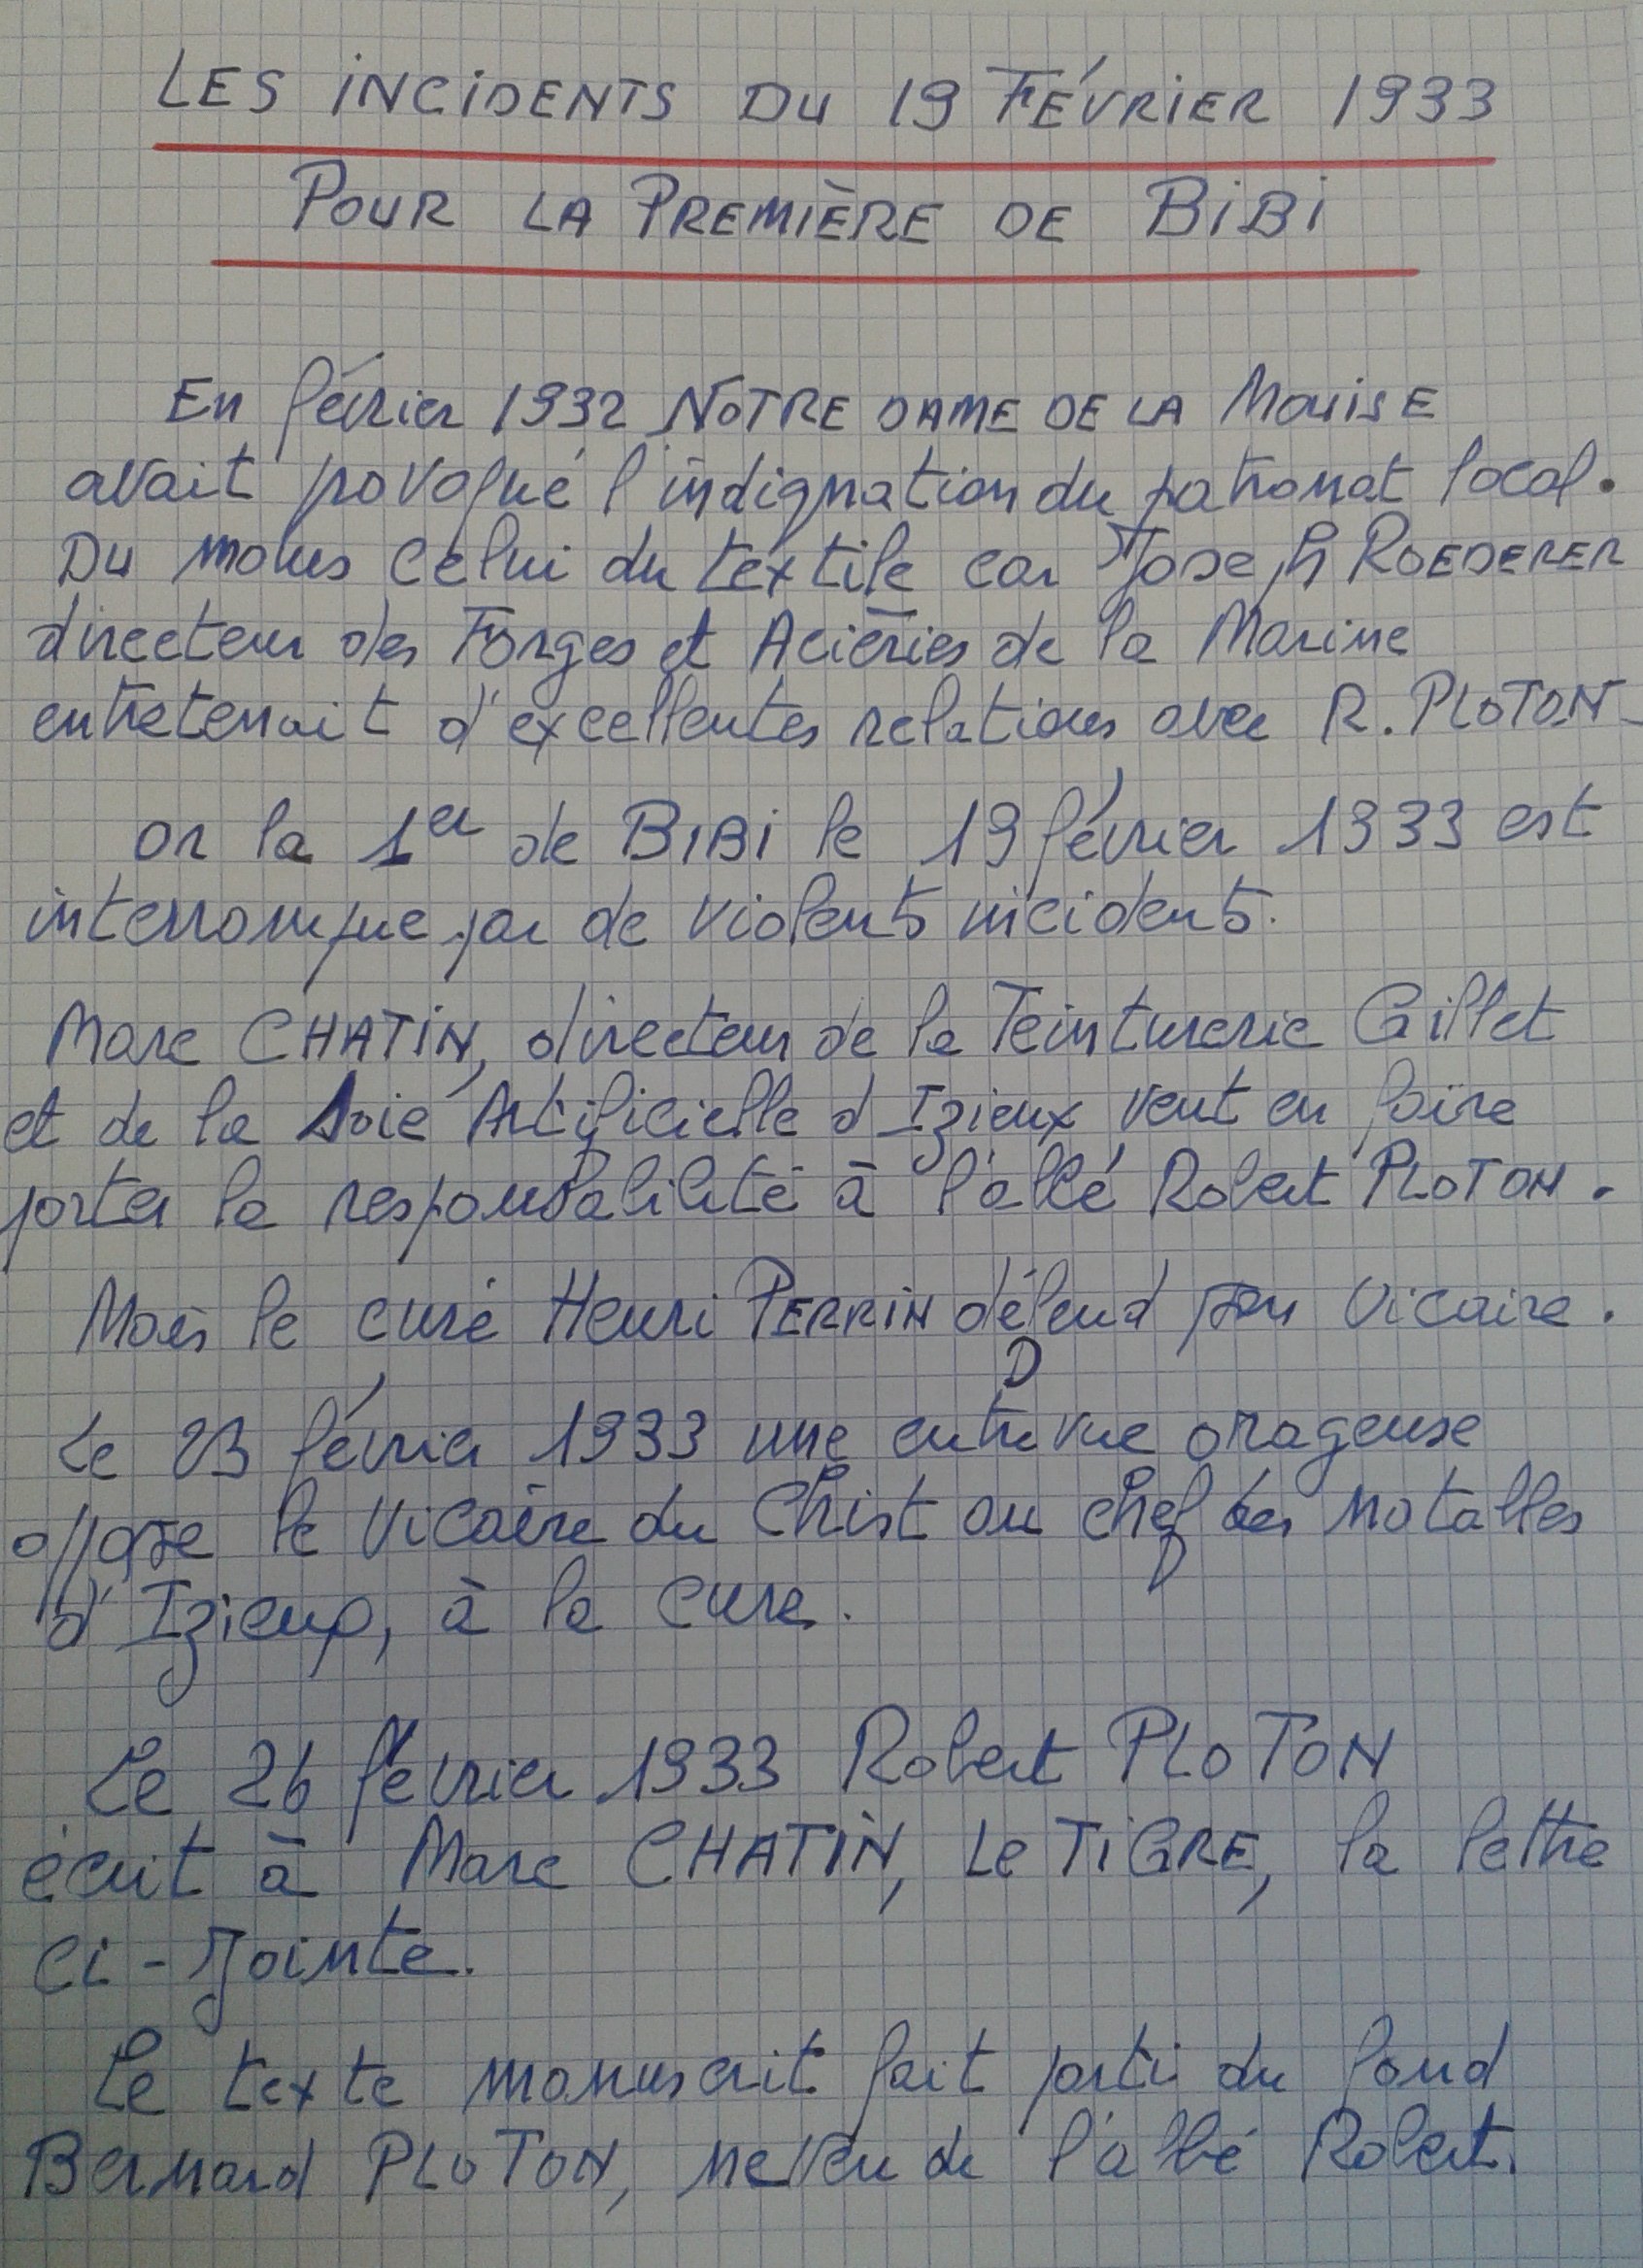 LES INCIDENTS DU 19 FÉVRIER 1933
POUR LA PREMIÈRE DE BIBI
En février 1932 NOTRE DAME DE LA MouisE
avait provoqué l'indignation du patronat local.
Du moins celui du textile car Joseph ROEDERER
directeur des Forges et Aciéries de la Marine
entretenait d'excellentes relations avec R. PLOTON-
or la 1er de BIBI le 19 février 1933 est
interrompue par de violents incidents.
Marc CHATIN, directeur de la Teinturerie Gillet
et de la Soie Artificielle d'Izieux, veut en faire
porter la responsabilité à l'abbé Robert PLOTON.
Mais le curé Henri PERRIN défend son vicaire.
Le 23 février 1933 une entrevue orageuse
oppose le vicaire du Christ au chef des notables
d'Izieux, à la cure.
Le 26 février 1933 Robert PLOTON
écrit à Marc CHATIN, Le TIGRE, la lettre
ci-jointe.
Le texte manuscrit fait parti du fond
Bernard PLOTON, neveu de l'abbé Robert.